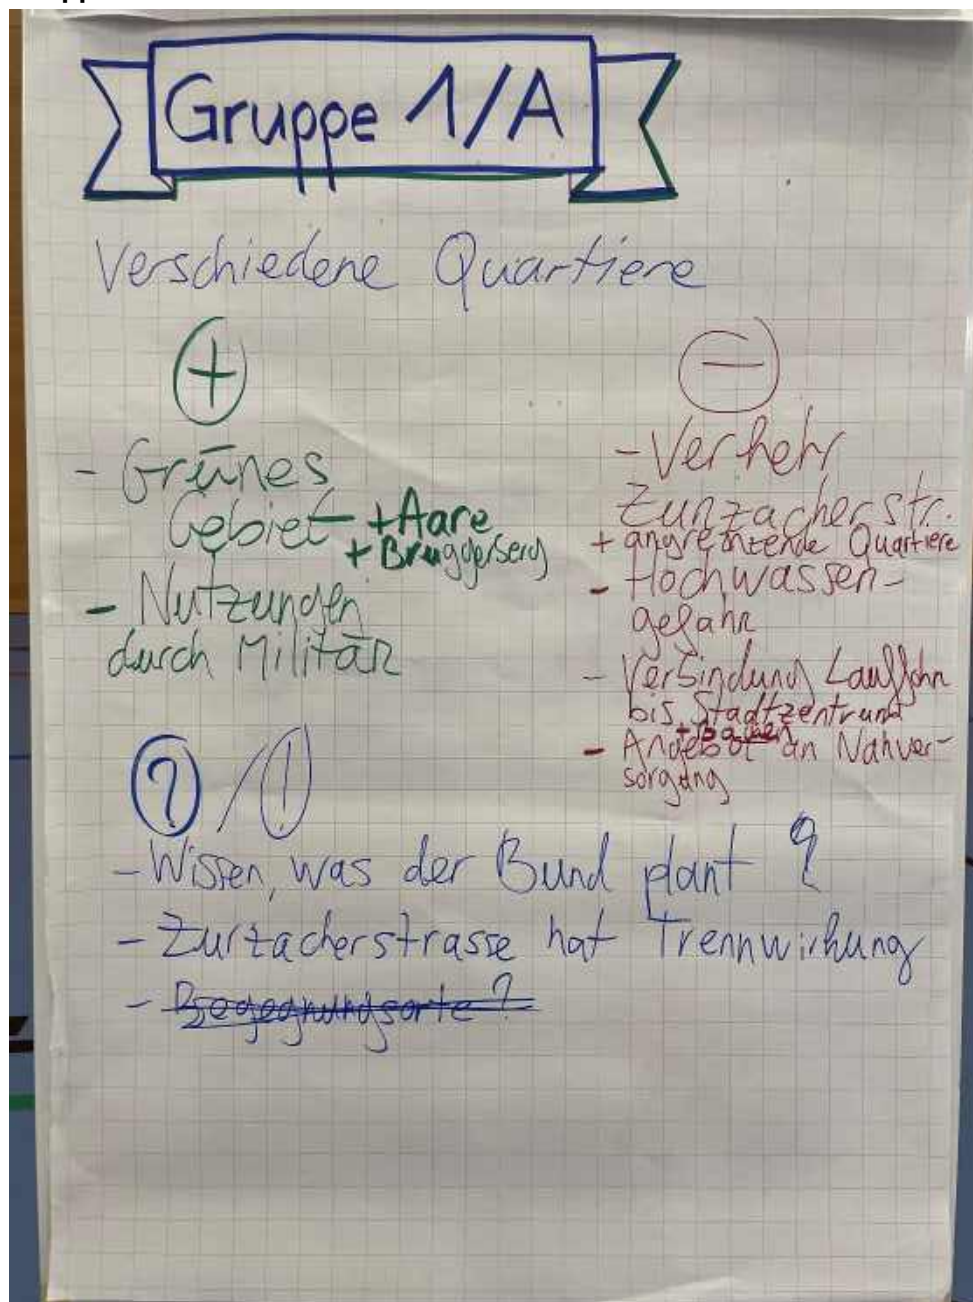 Gruppe 1/A
Verschiedene Quartiere
+
- Grünes
Gebiet + Aare
+ Bruggerberg
- Nutzungen
durch Militär
–
- Verkehr
Zurzacherstr.
+ angrenzende Quartiere
- Hochwasser-
gefahr
- Verbindung Lauffohr
bis Stadtzentrum
+ Baden
- Angebot an Nahver-
sorgung
? / !
- Wissen, was der Bund plant ?
- Zurzacherstrasse hat Trennwirkung
- Begegnungsorte ?